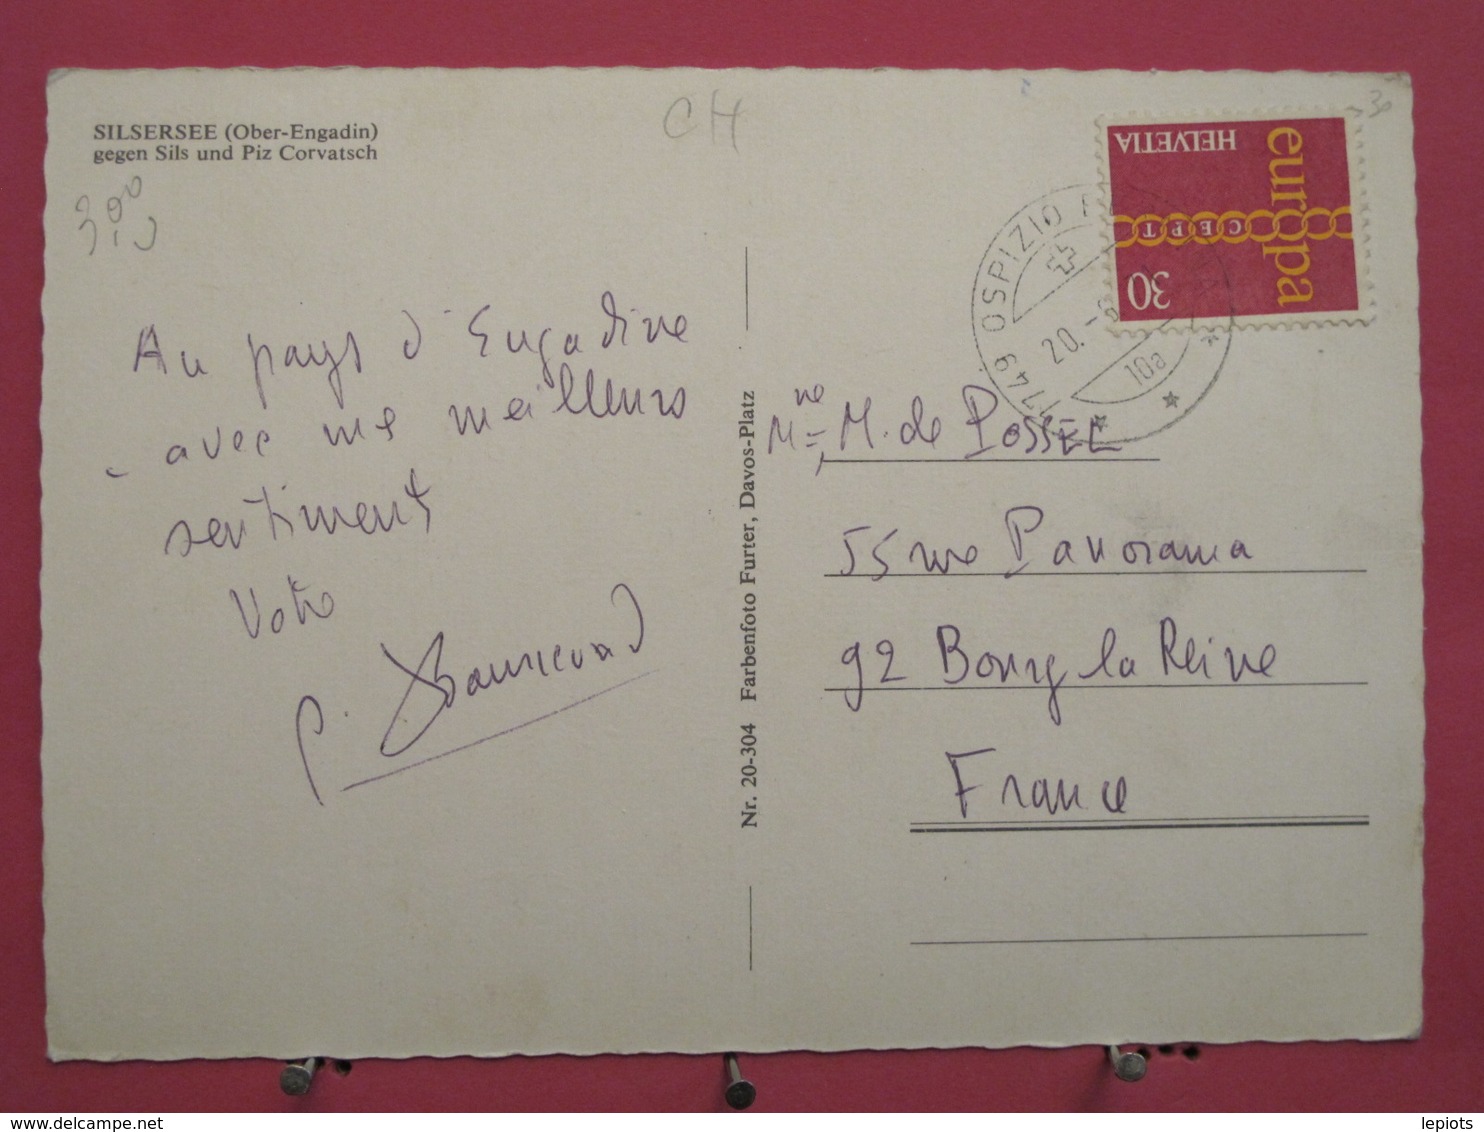 SILSERSEE (Ober-Engadin)
gegen Sils und Piz Corvatsch
CH
30
Au pays d'Engadine
avec mes meilleurs
sentiments
Votre
HELVETIA
europa
CEPT
30
7749 OSPIZIO
20.-
10a
Nr. 20-304 Farbenfoto Furter, Davos-Platz
Mme M. de POSSEL
55 rue Panorama
92 Bourg la Reine
France
lepiots